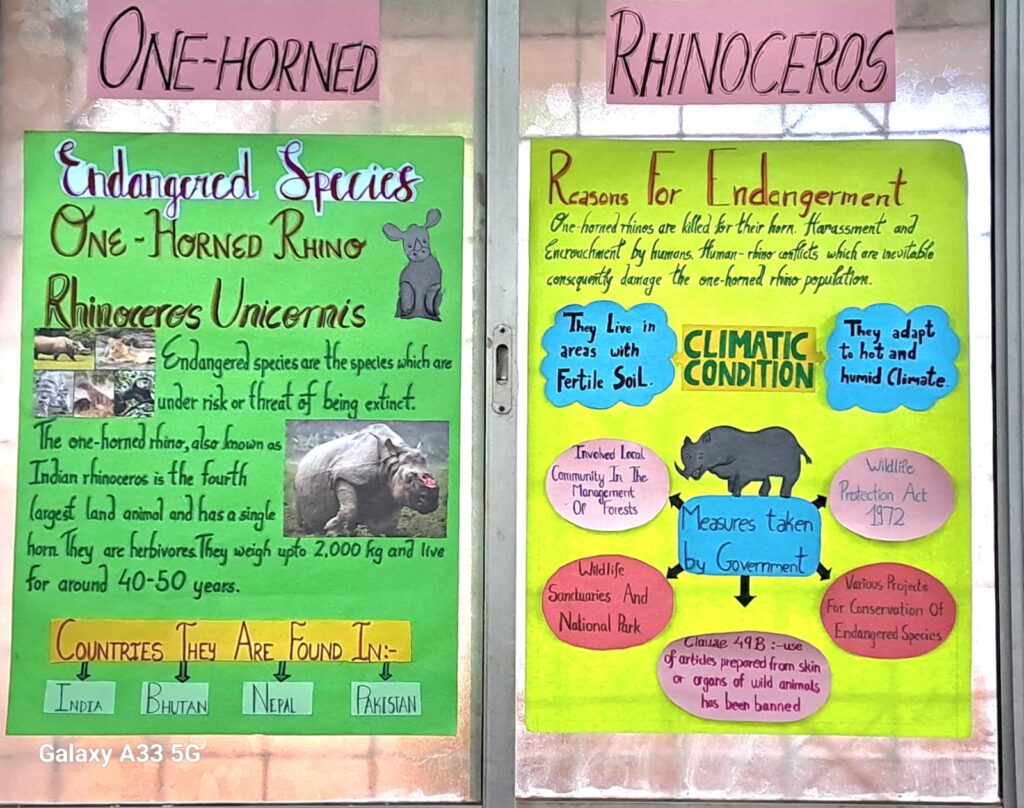 ONE-HORNED
RHINOCEROS
Endangered Species
ONE-HORNED RHINO
Rhinoceros Unicornis
Endangered species are the species which are
under risk or threat of being extinct.
The one-horned rhino, also known as
Indian rhinoceros is the fourth
largest land animal and has a single
horn. They are herbivores. They weigh upto 2,000 kg and live
for around 40-50 years.
COUNTRIES THEY ARE FOUND IN:-
INDIA
BHUTAN
NEPAL
PAKISTAN
REASONS FOR ENDANGERMENT
One-horned rhinos are killed for their horn. Harassment and
Encroachment by humans. Human-rhino conflicts which are inevitable
consequently damage the one-horned rhino population.
They Live in
areas with
Fertile Soil.
CLIMATIC
CONDITION
They adapt
to hot and
humid Climate.
Involved Local
Community In The
Management
Of Forests
Wildlife
Protection Act
1972
Measures taken
by Government
Wildlife
Sanctuaries And
National Park
Various Projects
For Conservation Of
Endangered Species
Clause 49 B :-use
of articles prepared from skin
or organs of wild animals
has been banned
Galaxy A33 5G